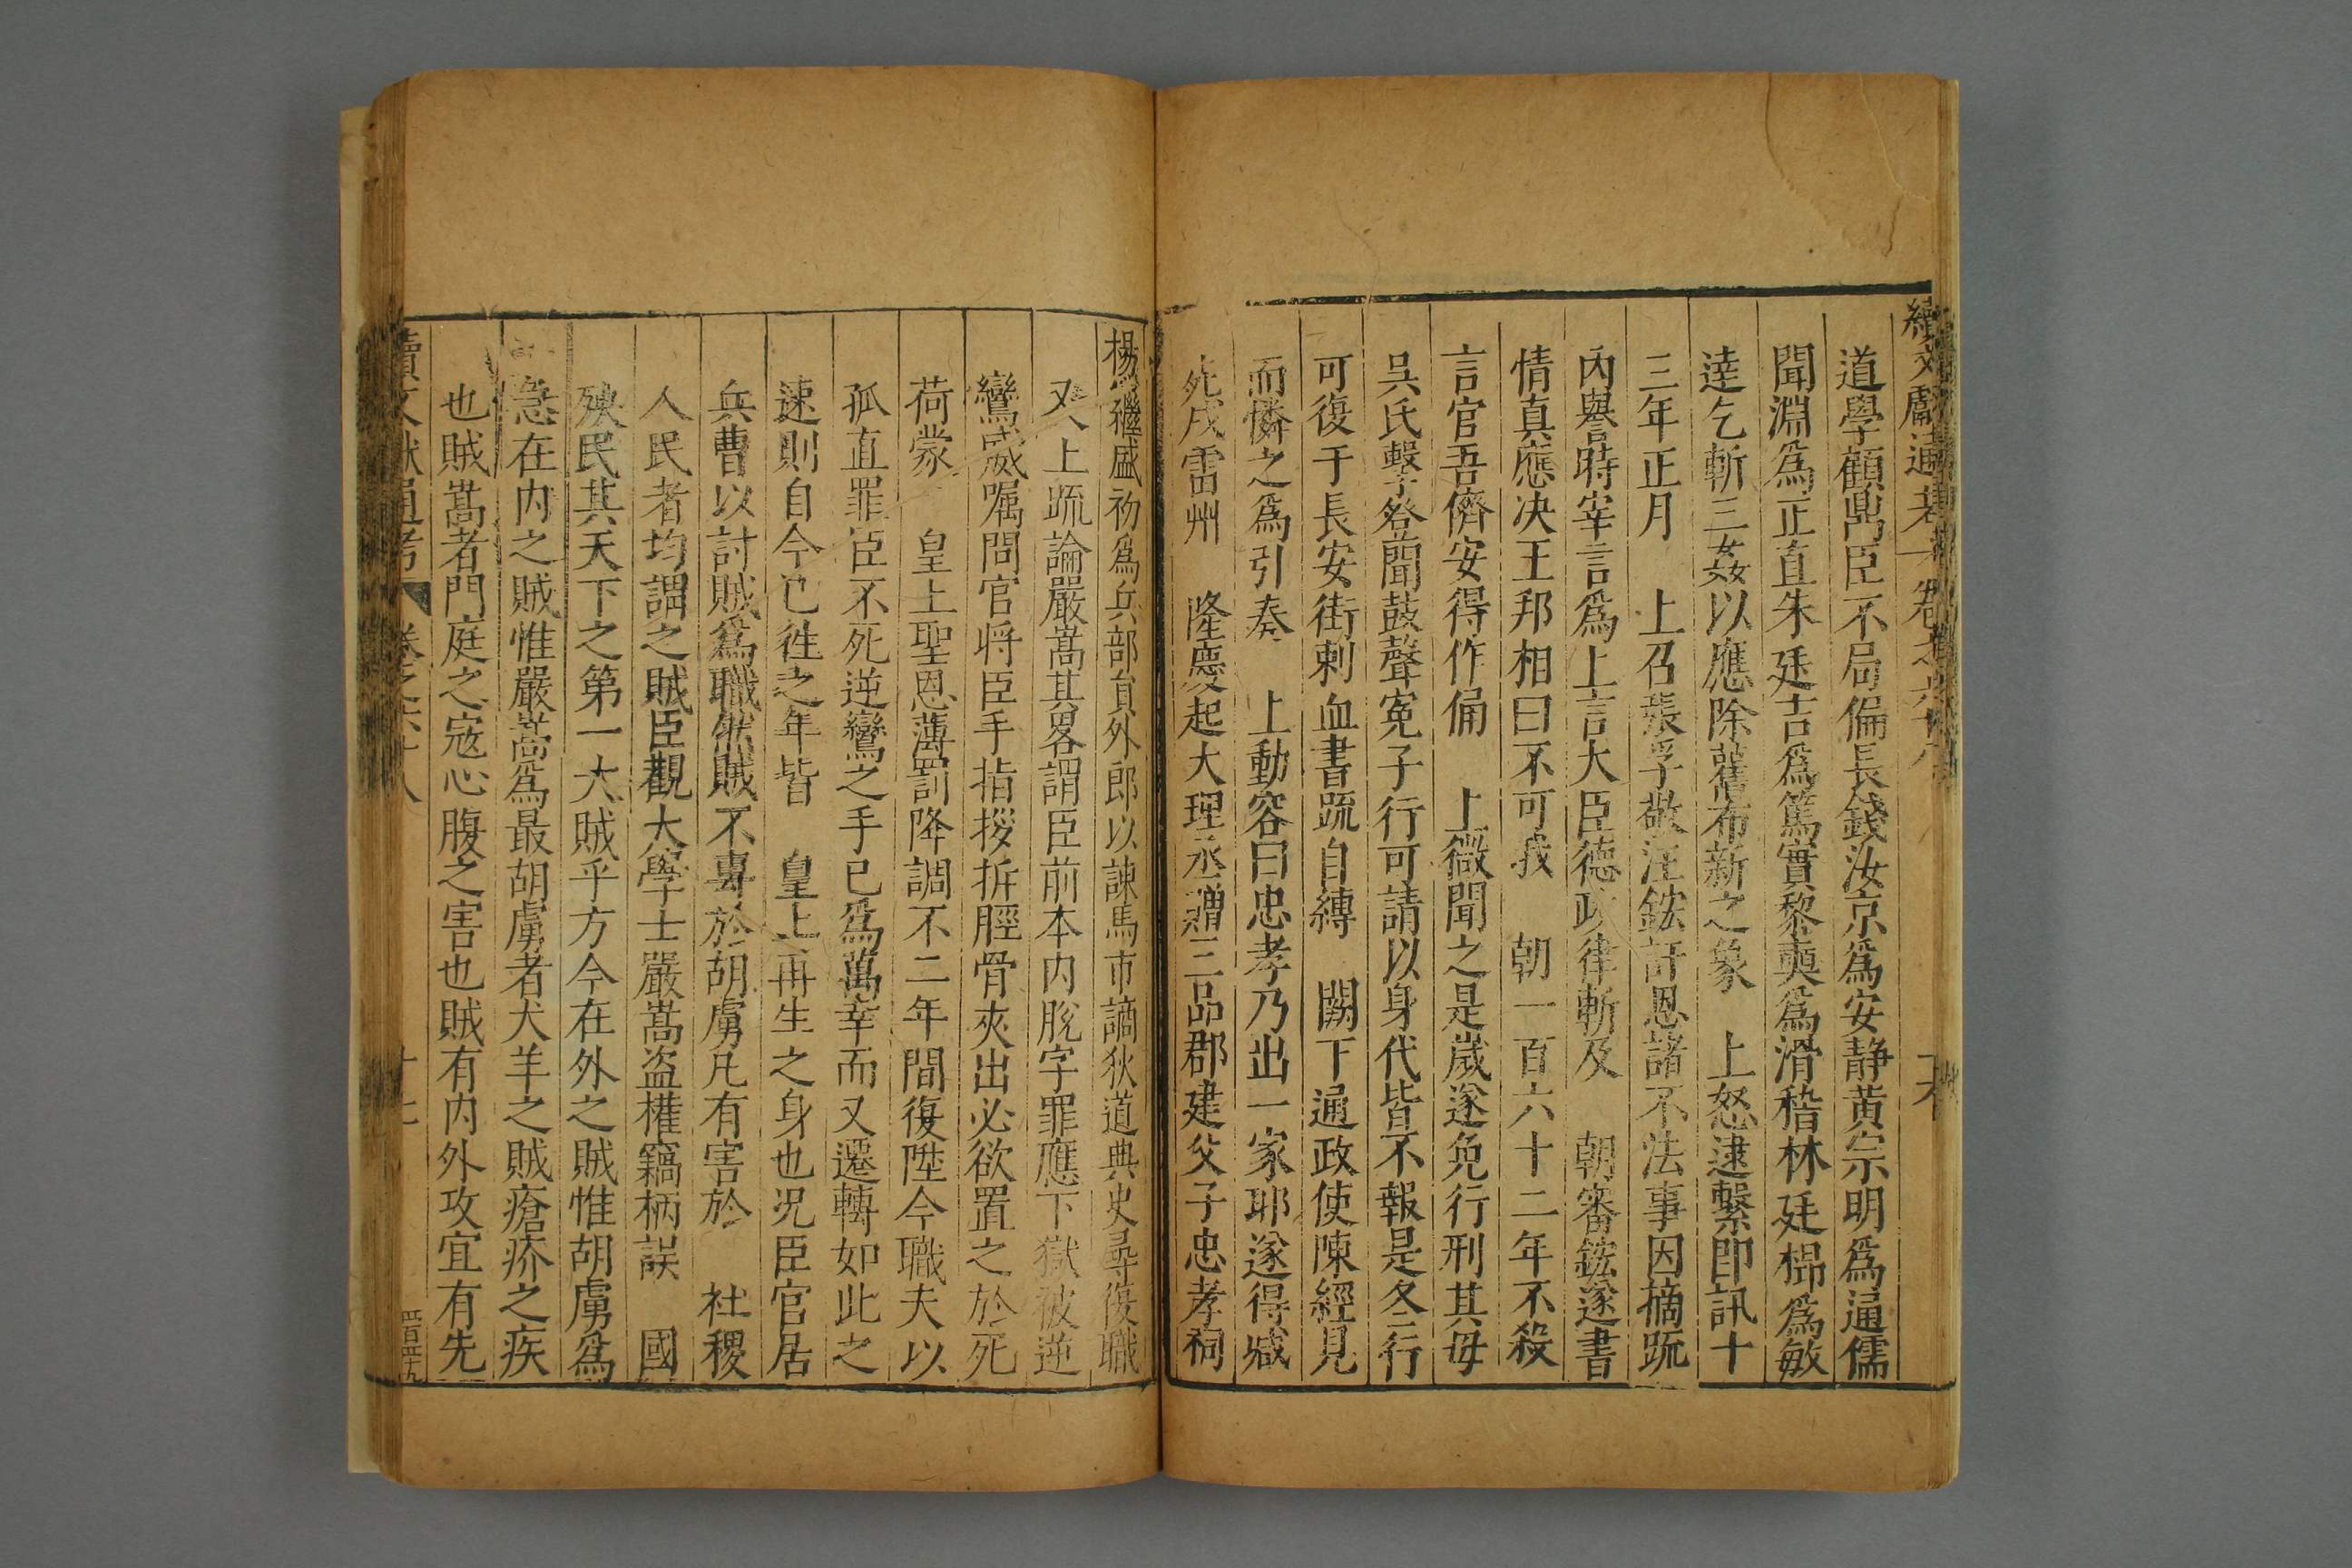 續文獻通考 卷之六十八
道學顧鼎臣不局偏長錢汝京爲安静黄宗明爲通儒
聞淵爲正直朱廷吉爲篤實黎奭爲滑稽林廷㭿爲敏
達乞斬三姦以應除舊布新之象 上怒逮繫即訊十
三年正月 上召張孚敬汪鋐訐恩諸不法事因摘䟽
内譽時宰言爲上言大臣德政律斬及 朝審鋐遂書
情真應决王邦相曰不可我 朝一百六十二年不殺
言官吾儕安得作俑 上微聞之是歲遂免行刑其母
吳氏擊登聞鼓聲寃子行可請以身代皆不報是冬行
可復于長安街刺血書䟽自縛 闕下通政使陳經見
而憐之爲引奏 上動容曰忠孝乃出一家耶遂得减
死戍雷州 隆慶起大理丞贈三品郡建父子忠孝祠
楊繼盛初爲兵部員外郎以諫馬市謫狄道典史尋復職
又上䟽論嚴嵩其畧謂臣前本内脫字罪應下獄被逆
鸞威嘱問官將臣手指拶折脛骨夾出必欲置之於死
荷蒙 皇上聖恩薄罰降調不二年間復陞今職夫以
孤直罪臣不死逆鸞之手已爲萬幸而又遷轉如此之
速則自今已徃之年皆 皇上再生之身也况臣官居
兵曹以討賊爲職然賊不專於胡虜凡有害於 社稷
人民者均謂之賊臣觀大學士嚴嵩盗權竊柄誤 國
殃民其天下之第一大賊乎方今在外之賊惟胡虜爲
急在内之賊惟嚴嵩爲最胡虜者犬羊之賊瘡疥之疾
也賊嵩者門庭之宼心腹之害也賊有内外攻宜有先
續文獻通考 卷之六十八 十七